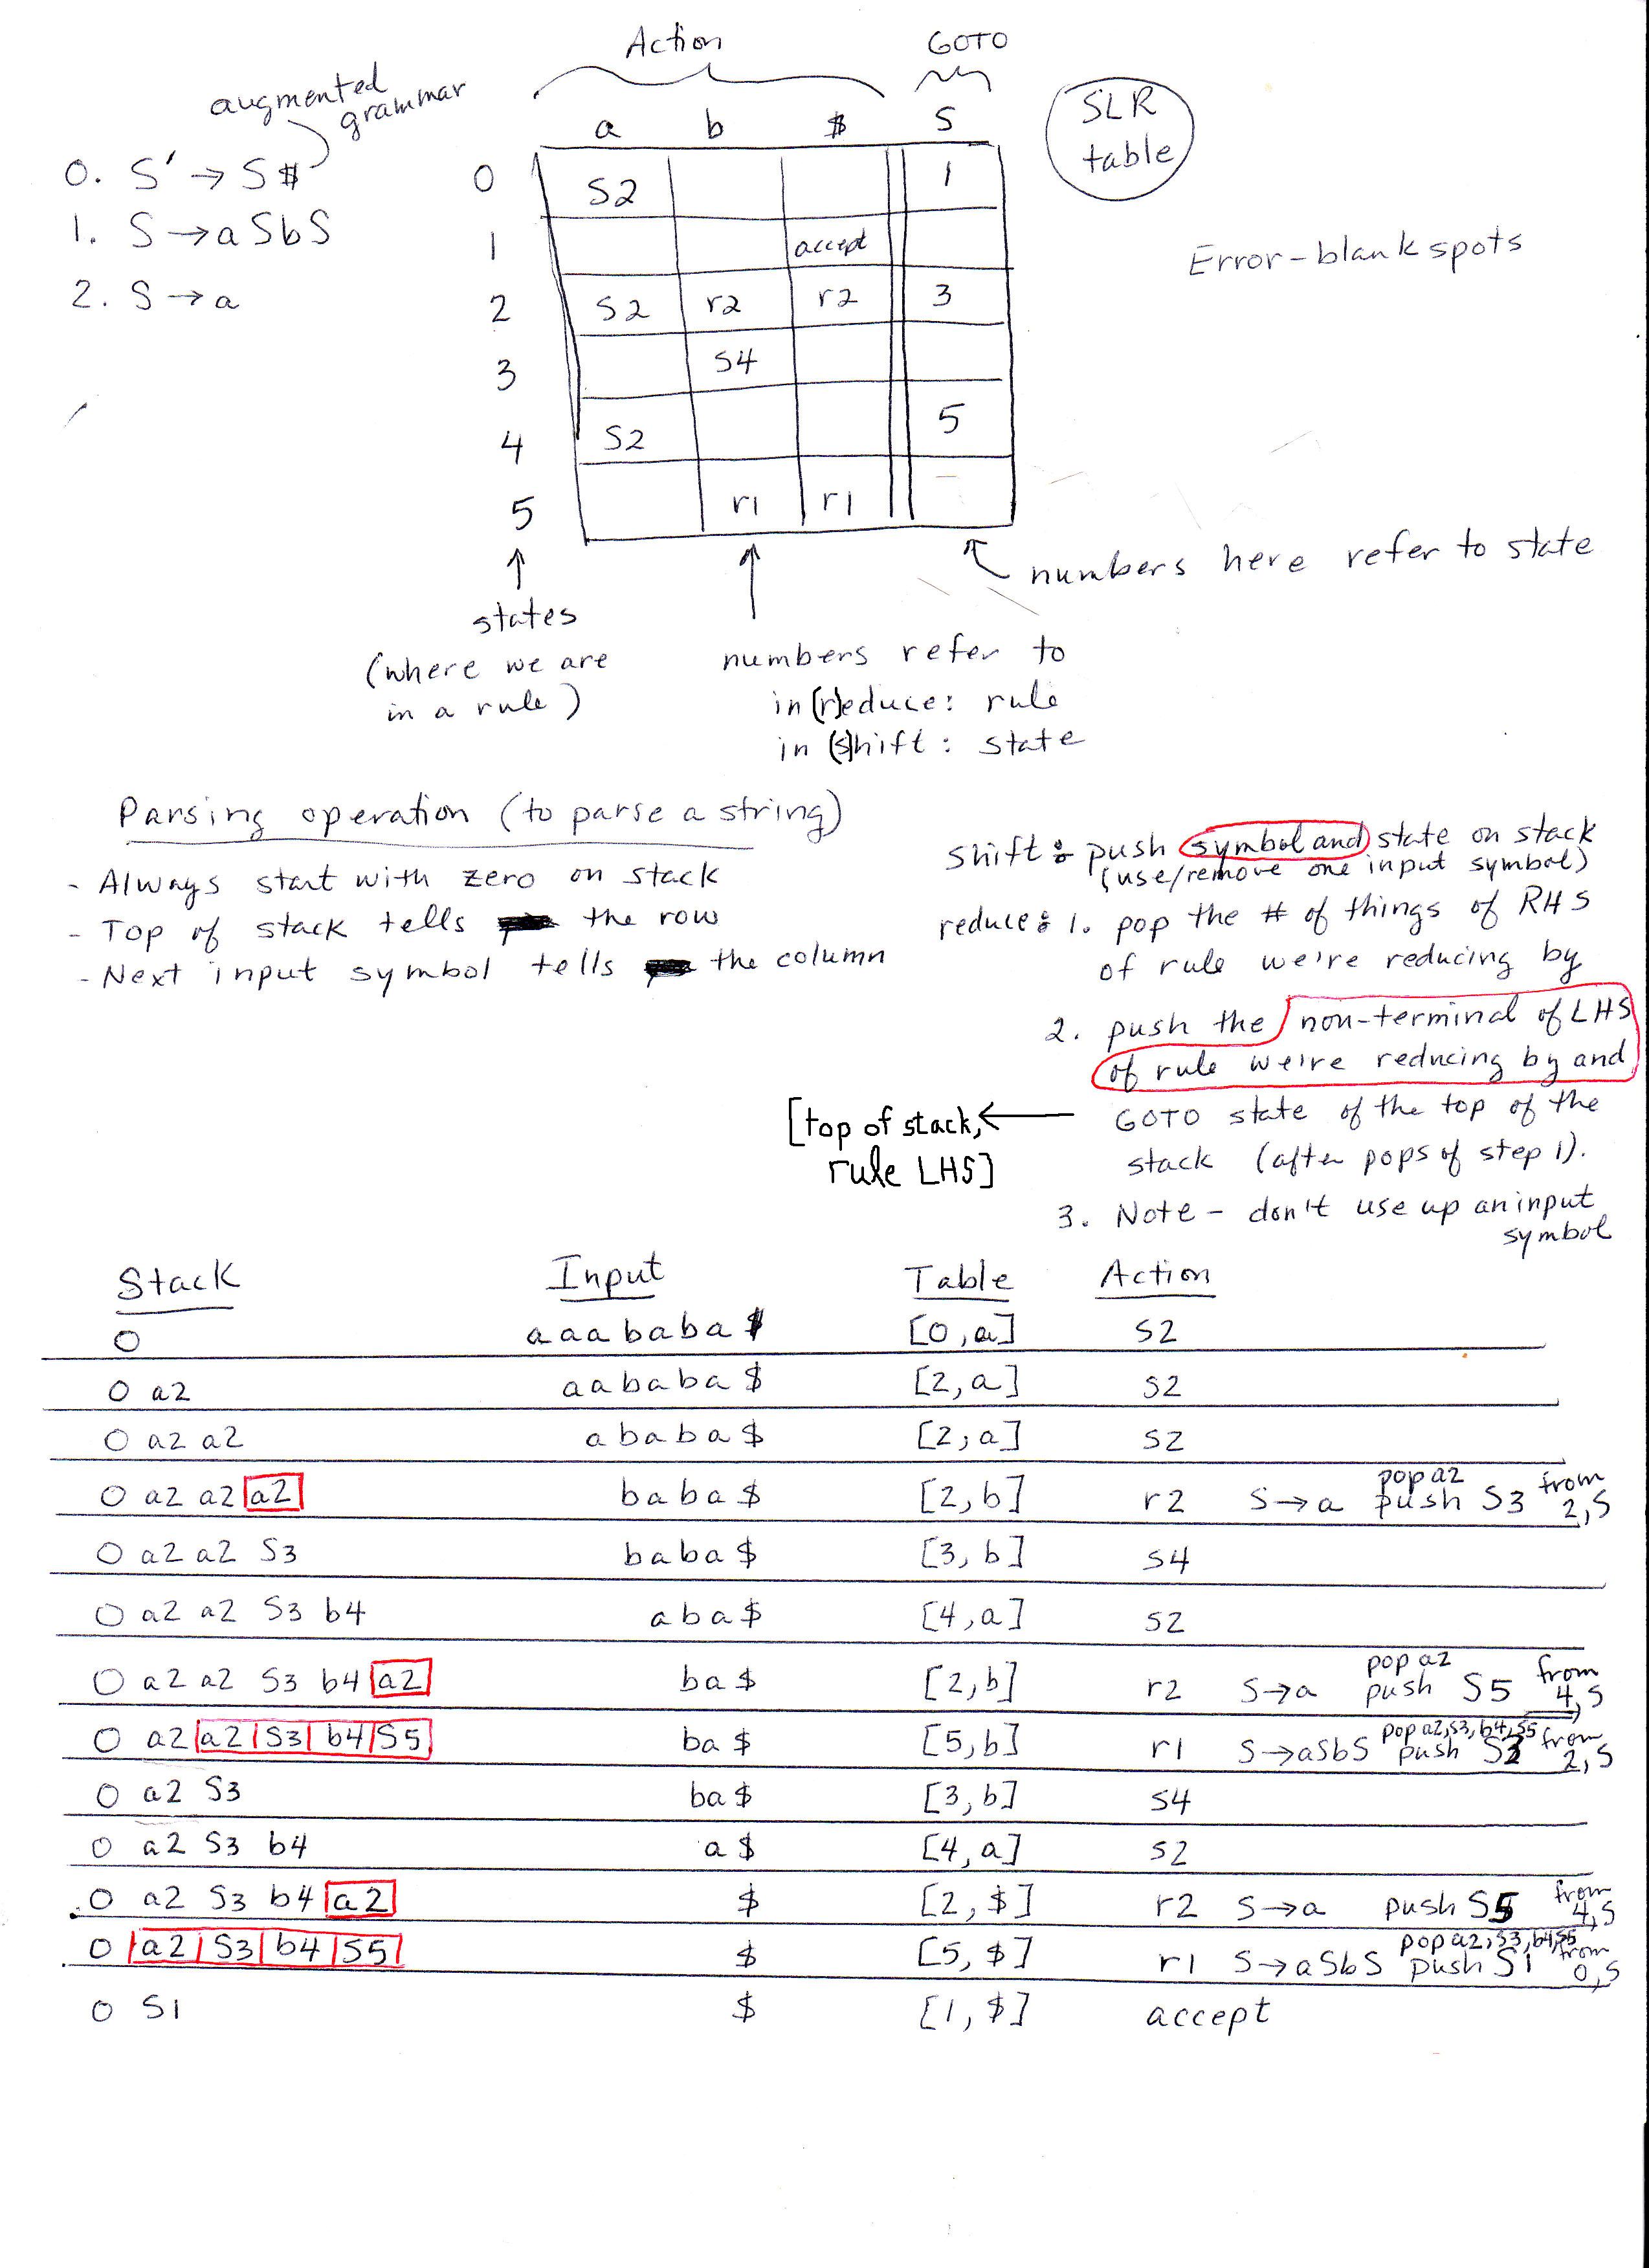 Action GOTO
augmented grammar
a b $ S
SLR table
0. S' → S$
1. S → aSbS
2. S → a
0 S2 1
1 accept
2 S2 r2 r2 3
3 S4
4 S2 5
5 r1 r1
Error - blank spots
states
(where we are
in a rule)
numbers refer to
in (r)educe: rule
in (s)hift: state
numbers here refer to state
Parsing operation (to parse a string)
- Always start with zero on stack
- Top of stack tells the row
- Next input symbol tells the column
shift: push symbol and state on stack
(use/remove one input symbol)
reduce: 1. pop the # of things of RHS
of rule we're reducing by
2. push the non-terminal of LHS
of rule we're reducing by and
GOTO state of the top of the
stack (after pops of step 1).
[top of stack, ←
rule LHS]
3. Note - don't use up an input
symbol
Stack Input Table Action
0 aaababa$ [0,a] S2
0 a2 aababa$ [2,a] S2
0 a2 a2 ababa$ [2,a] S2
0 a2 a2 a2 baba$ [2,b] r2 S→a pop a2 push S3 from 2,S
0 a2 a2 S3 baba$ [3,b] S4
0 a2 a2 S3 b4 aba$ [4,a] S2
0 a2 a2 S3 b4 a2 ba$ [2,b] r2 S→a pop a2 push S5 from 4,S
0 a2 a2 S3 b4 S5 ba$ [5,b] r1 S→aSbS pop a2,S3,b4,S5 push S3 from 2,S
0 a2 S3 ba$ [3,b] S4
0 a2 S3 b4 a$ [4,a] S2
0 a2 S3 b4 a2 $ [2,$] r2 S→a push S5 from 4,S
0 a2 S3 b4 S5 $ [5,$] r1 S→aSbS pop a2,S3,b4,S5 push S1 from 0,S
0 S1 $ [1,$] accept